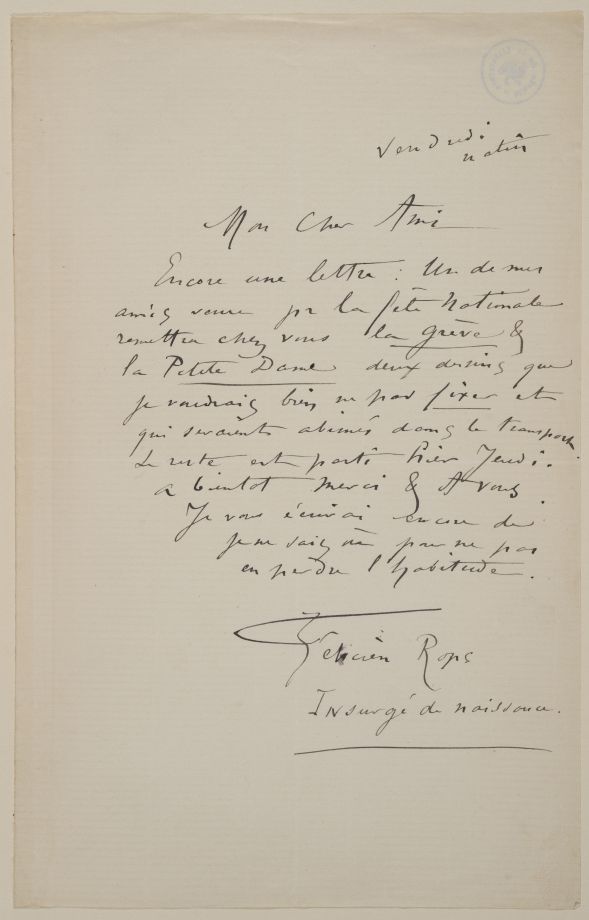 Vendredi
matin
Mon Cher Ami
Encore une lettre : Un de mes
amis venu pr la fête Nationale
remettra chez vous la grève &
la Petite Dame deux dessins que
je voudrais bien ne pas fixer et
qui seraient abimés dans le transport.
Le reste est parti hier Jeudi.
a bientot merci & A vous
Je vous écrirai encore de
je ne sais où pour ne pas
en perdre l'habitude.
Félicien Rops
Insurgé de naissance.